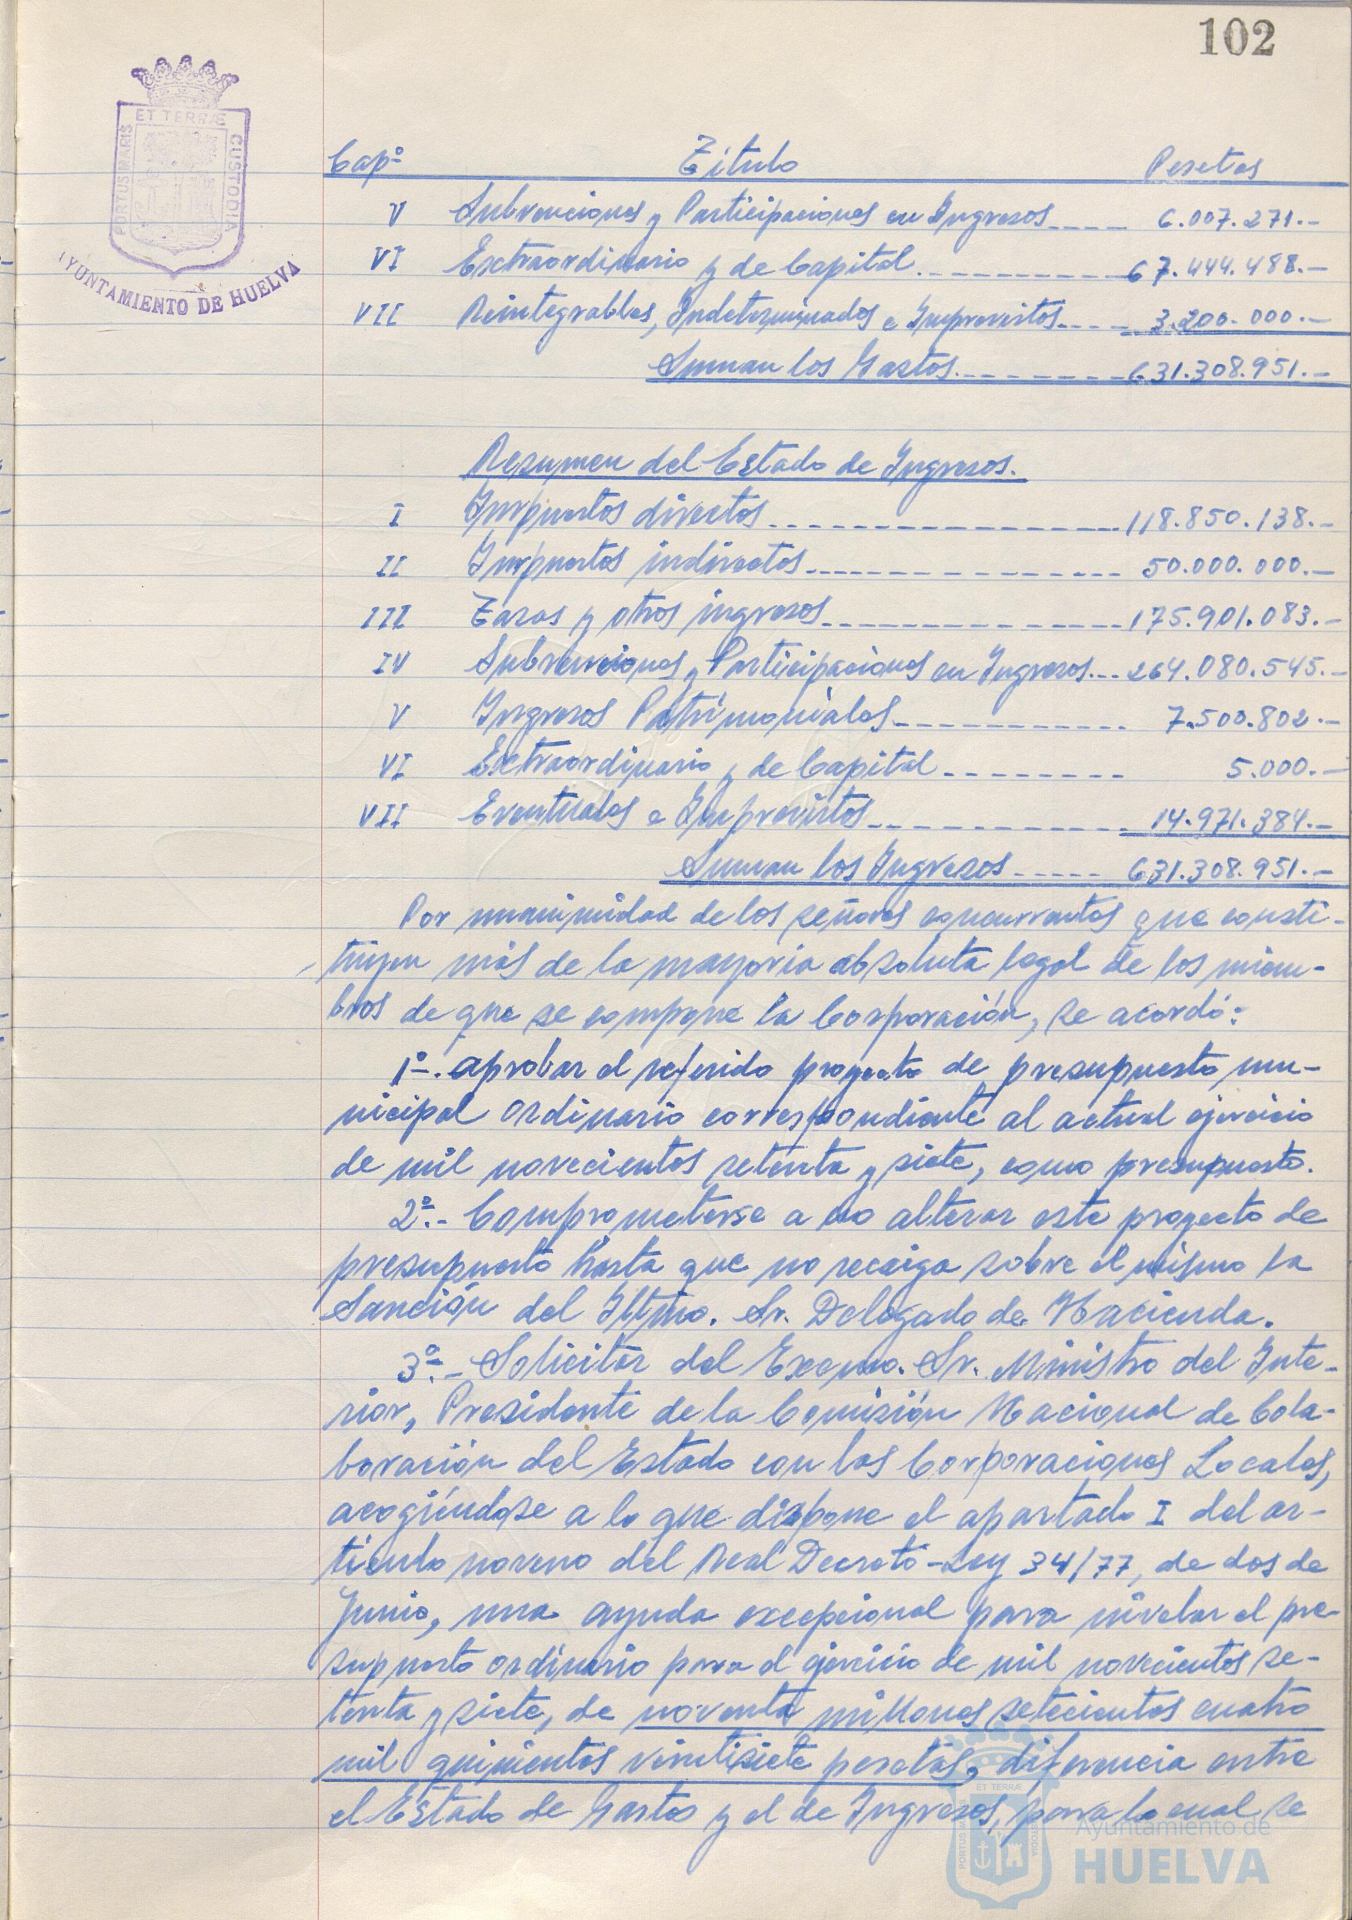 102
ET TERRÆ
PORTUS MARIS
CUSTODIA
AYUNTAMIENTO DE HUELVA
Capº Título Pesetas
V Subvenciones y Participaciones en Ingresos---- 6.007.271.-
VI Extraordinario y de Capital.---------- 67.444.488.-
VII Reintegrables, Indeterminados e Imprevistos---- 3.200.000.-
Suman los Gastos.-------- 631.308.951.-
Resumen del Estado de Ingresos.
I Impuestos directos---------------- 118.850.138.-
II Impuestos indirectos-------------- 50.000.000.-
III Tasas y otros ingresos------------- 175.901.083.-
IV Subvenciones y Participaciones en Ingresos--- 264.080.545.-
V Ingresos Patrimoniales----------- 7.500.802.-
VI Extraordinario y de Capital-------- 5.000.-
VII Eventuales e Imprevistos----------- 14.971.384.-
Suman los Ingresos----- 631.308.951.-
Por unanimidad de los señores concurrentes que consti-
tuyen más de la mayoría absoluta legal de los miem-
bros de que se compone la Corporación, se acordó:
1º-. aprobar el referido proyecto de presupuesto mu-
nicipal ordinario correspondiente al actual ejercicio
de mil novecientos setenta y siete, como presupuesto.
2º.- Comprometerse a no alterar este proyecto de
presupuesto hasta que no recaiga sobre el mismo la
Sanción del Iltmo. Sr. Delegado de Hacienda.
3º.- Solicitar del Excmo. Sr. Ministro del Inte-
rior, Presidente de la Comisión Nacional de Cola-
boración del Estado con las Corporaciones Locales,
acogiéndose a lo que dispone el apartado I del ar-
tículo noveno del Real Decreto-Ley 34/77, de dos de
Junio, una ayuda excepcional para nivelar el pre-
supuesto ordinario para el ejercicio de mil novecientos se-
tenta y siete, de noventa millones setecientos cuatro
mil quinientos veintisiete pesetas, diferencia entre
el Estado de Gastos y el de Ingresos, para lo cual se
ET TERRÆ
Ayuntamiento de
HUELVA